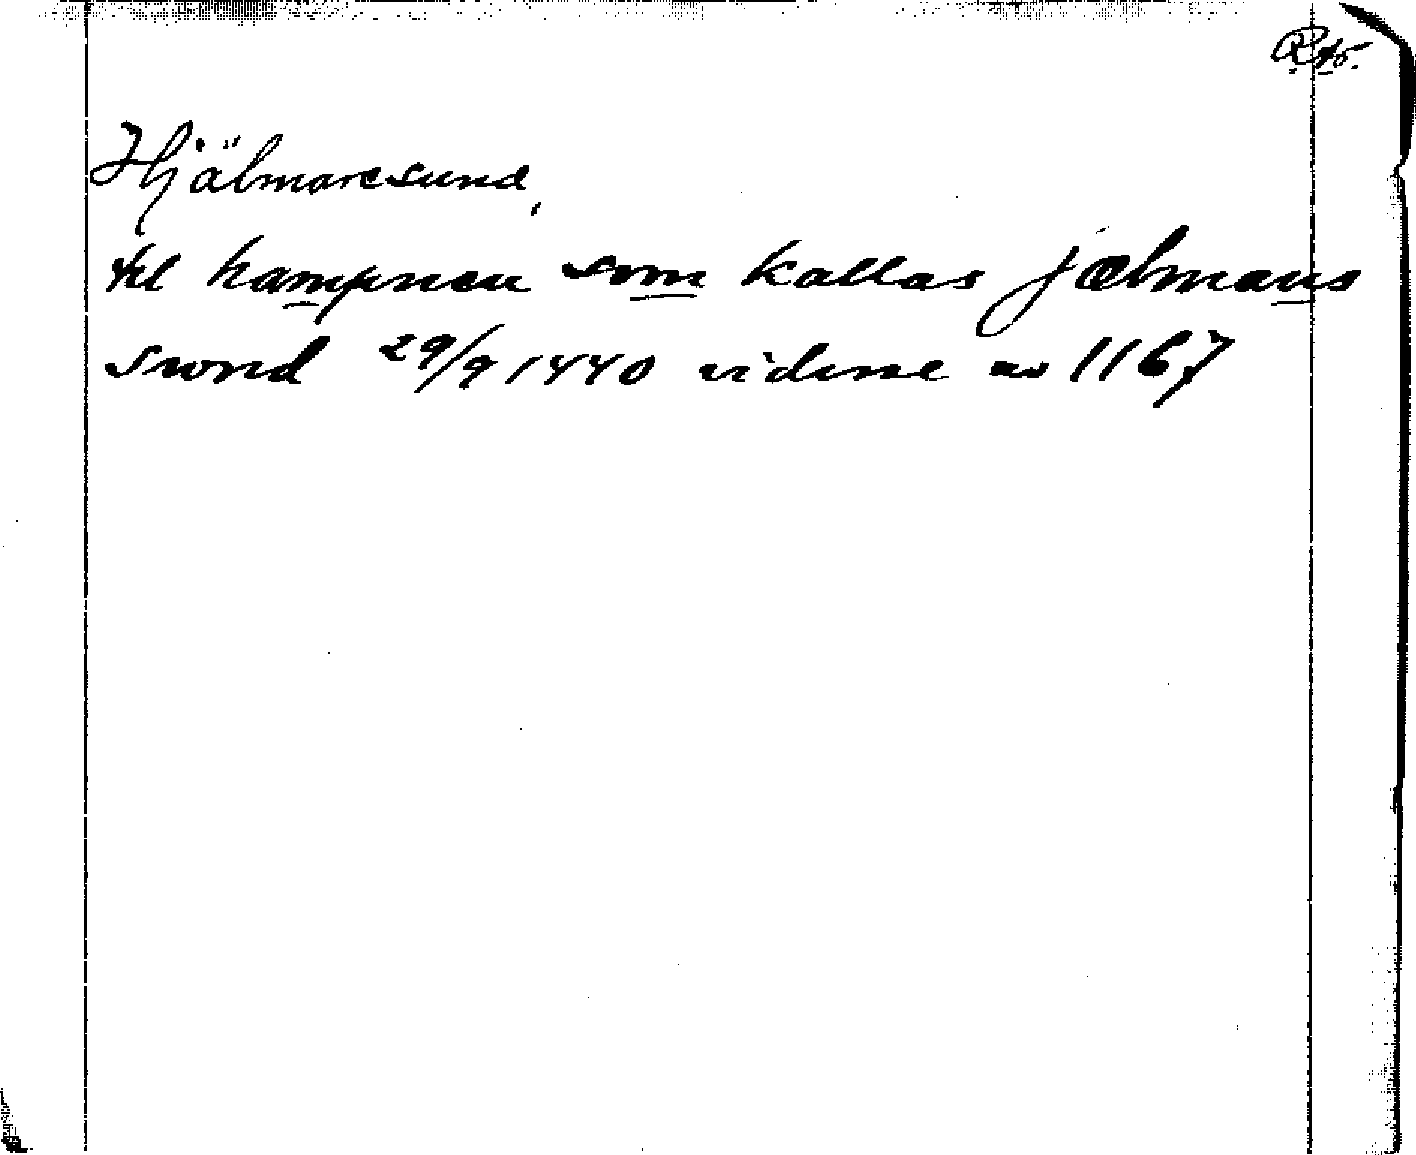 R A o.
Hjälmaresund,
til hampnen som kallas jælmans
swnd 29/9 1440 vidisse av 1167